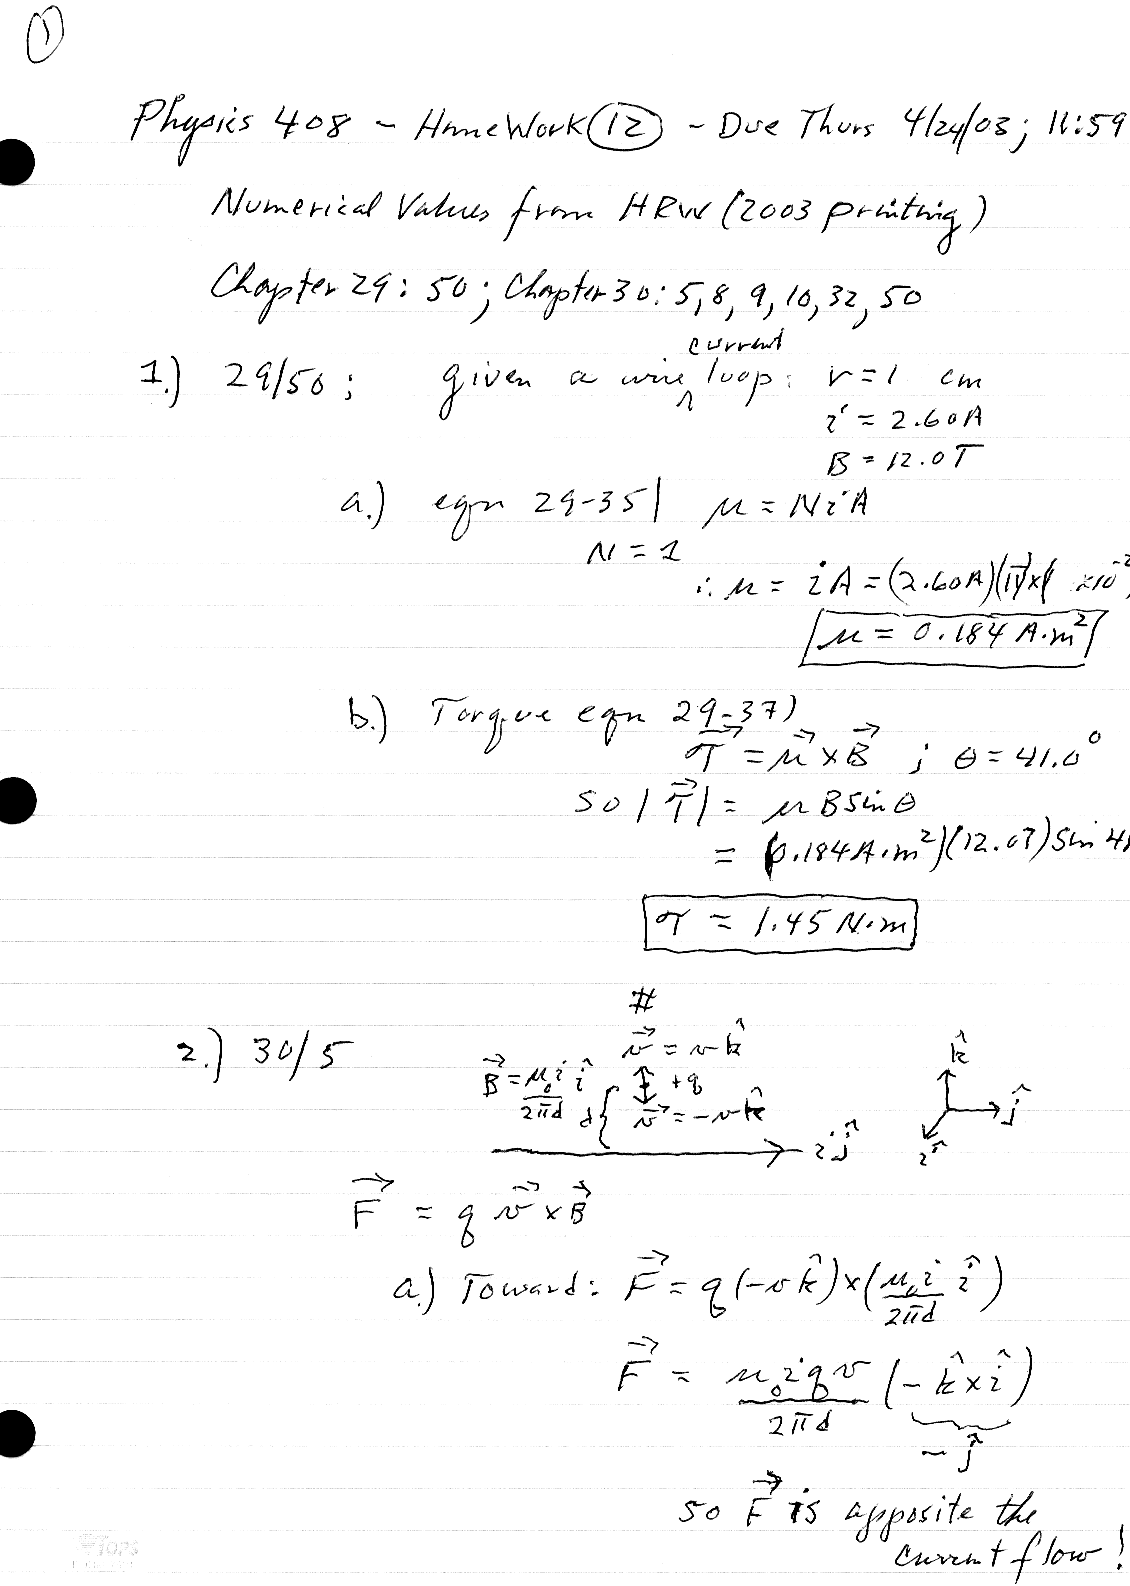 1
Physics 408 - HomeWork 12 - Due Thurs 4/24/03; 11:59
Numerical Values from HRW (2003 printing)
Chapter 29: 50; Chapter 30: 5, 8, 9, 10, 32, 50
1.) 29/50; given a wire current loop: r = 1 cm
i = 2.60A
B = 12.0T
a.) eqn 29-35| μ = NiA
N = 1
∴ μ = iA = (2.60A)(π)(1 x10⁻²
μ = 0.184 A·m²
b.) Torque eqn 29-37)
τ⃗ = μ⃗ x B⃗ ; θ = 41.0°
so |τ⃗| = μBsinθ
= (0.184A·m²)(12.0T) sin 41
τ = 1.45 N·m
#
2.) 30/5
v⃗ = v k̂
B⃗ = μ₀i/2πd î
+q
d
v⃗ = -v k̂
i ĵ
k̂
ĵ
î
F⃗ = q v⃗ x B⃗
a.) Toward: F⃗ = q(-v k̂) x (μ₀i/2πd î)
F⃗ = μ₀iqv/2πd (-k̂ x î)
-ĵ
so F⃗ is apposite the
current flow!